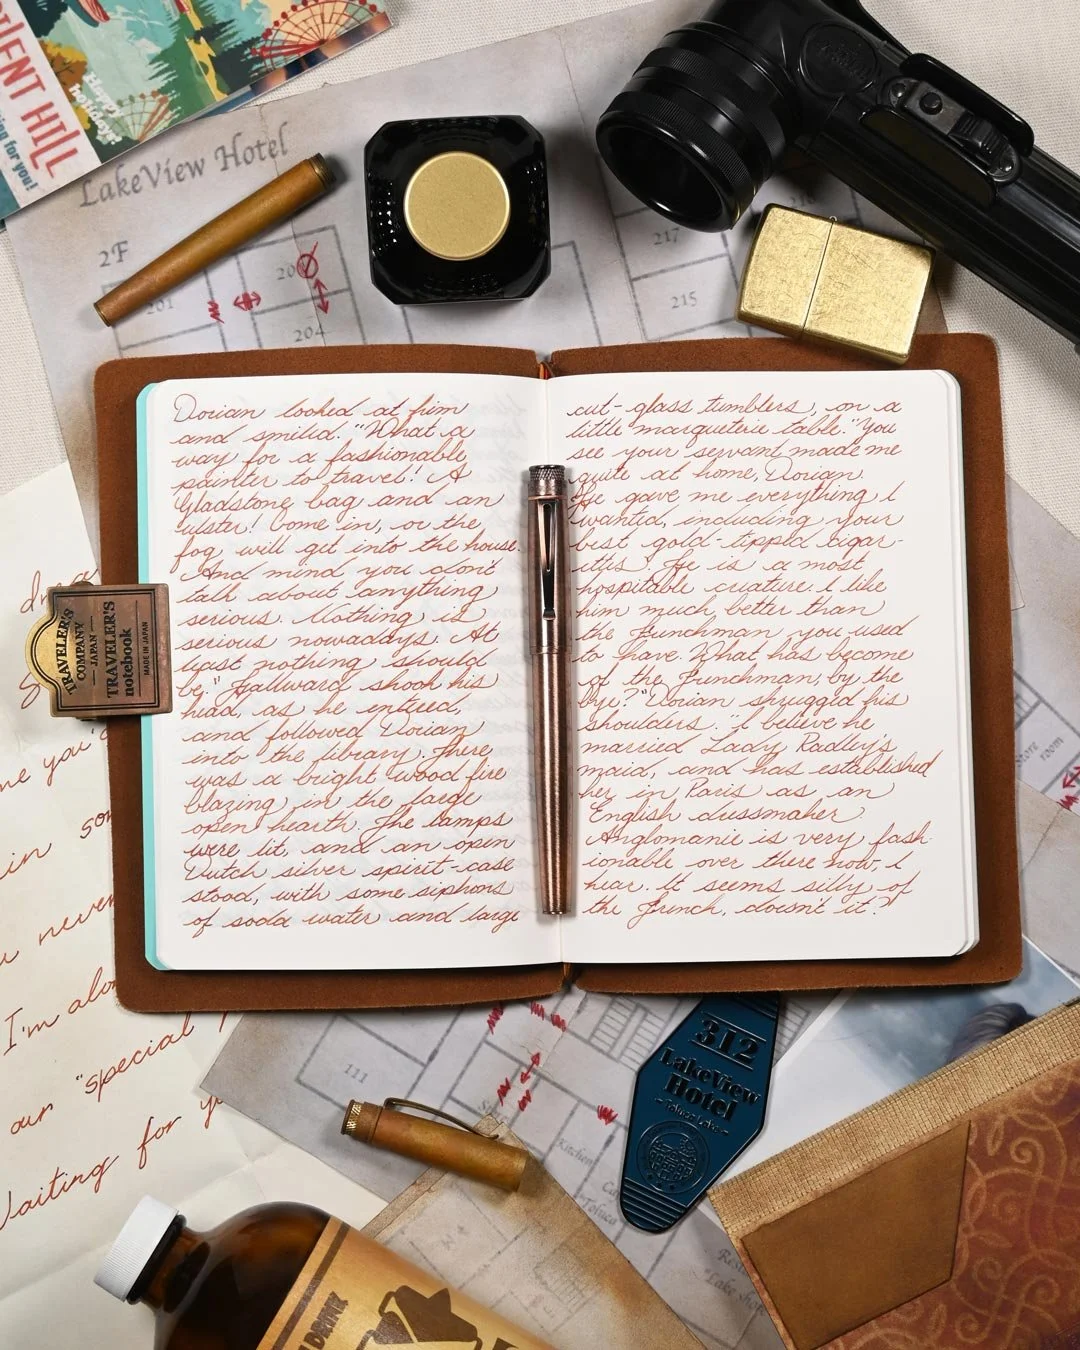 SILENT HILL
Happy holidays
ing for you!
LakeView Hotel
2F
201
204
217
215
Dorian looked at him
and smiled. "What a
way for a fashionable
painter to travel! A
Gladstone bag and an
ulster! Come in, or the
fog will get into the house.
And mind you don't
talk about anything
serious. Nothing is
serious nowadays. At
least nothing should
be." Hallward shook his
head, as he entered,
and followed Dorian
into the library. There
was a bright wood fire
blazing in the large
open hearth. The lamps
were lit, and an open
Dutch silver spirit-case
stood, with some siphons
of soda water and large
cut-glass tumblers, on a
little marqueterie table. "You
see your servant made me
quite at home, Dorian.
He gave me everything I
wanted, including your
best gold-tipped cigar-
ettes. He is a most
hospitable creature. I like
him much better than
the Frenchman you used
to have. What has become
of the Frenchman, by the
bye?" Dorian shrugged his
shoulders. "I believe he
married Lady Radley's
maid, and has established
her in Paris as an
English dressmaker.
Anglomanie is very fash-
ionable over there now, I
hear. It seems silly of
the French, doesn't it?
TRAVELER'S
COMPANY
JAPAN
TRAVELER'S
notebook
MADE IN JAPAN
me you'
in
never
I'm alo
our "special
Waiting for y
Store room
111
Kitchen
Toluca
"Lake
312
LakeView
Hotel
Toluca Lake
DRINK